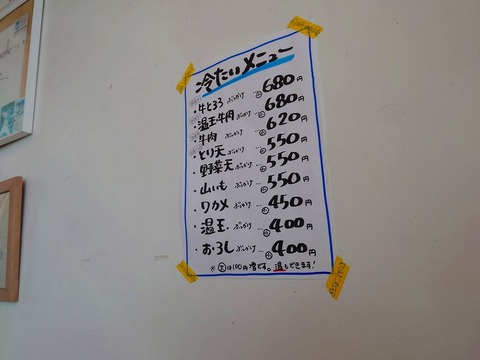 冷たいメニュー
・牛とろろ ぶっかけ … 小 680円
・温玉牛肉 ぶっかけ … 小 680円
・牛肉 ぶっかけ … 小 620円
・とり天 ぶっかけ … 小 550円
・野菜天 ぶっかけ … 小 550円
・山いも ぶっかけ … 小 550円
・ワカメ ぶっかけ … 小 450円
・温玉 ぶっかけ … 小 400円
・おろし ぶっかけ … 小 400円
※大は100円増です。温もできます!